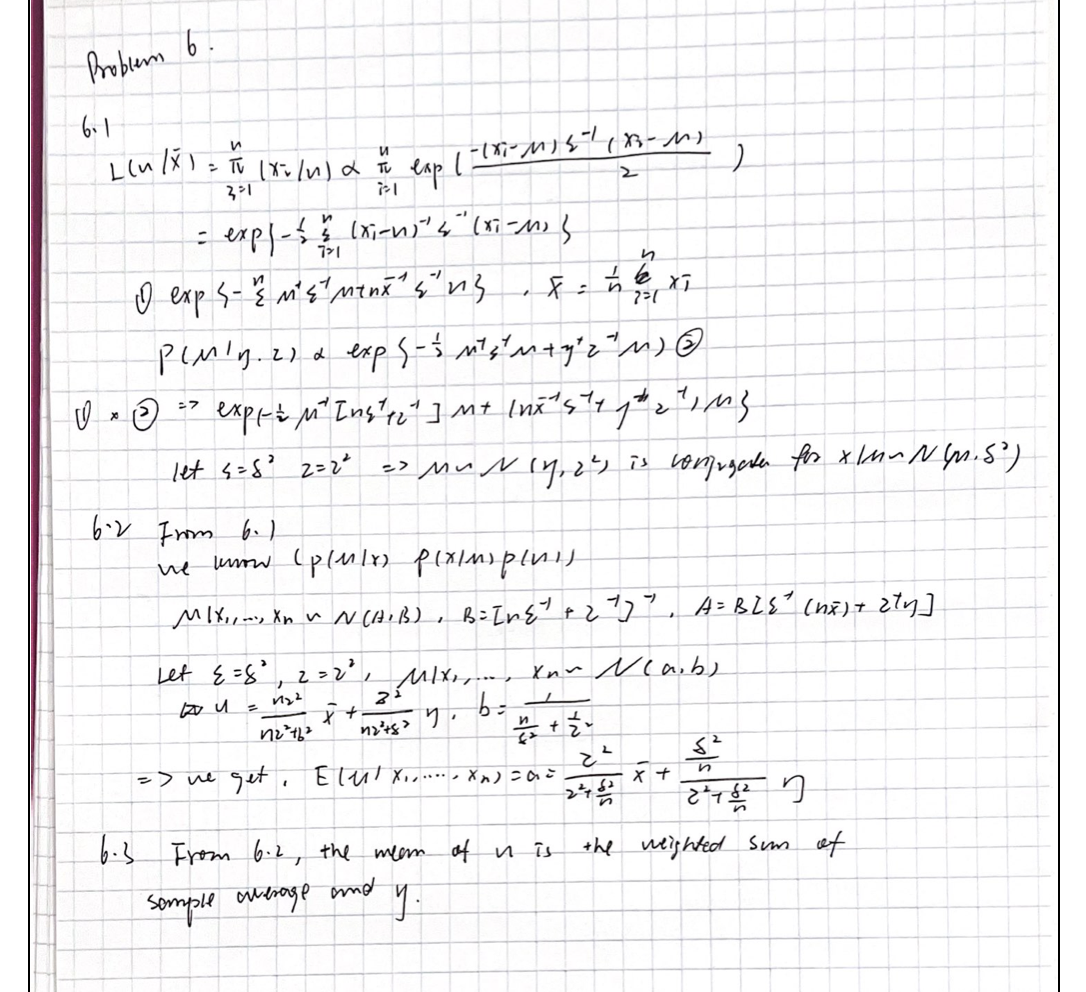 Problem 6.
6.1
L(μ|x̄) = π_{i=1}^{n} (xi|μ) ∝ π_{i=1}^{n} exp( -(xi-μ)Σ^{-1}(xi-μ) / 2 )
= exp{-1/2 Σ_{i=1}^{n} (xi-μ)^{-1} Σ^{-1} (xi-μ)}
① exp{-n/2 μ^{-1}Σ^{-1}μ+nx̄^{-1}Σ^{-1}μ}, x̄ = 1/n Σ_{i=1}^{n} xi
P(μ|η.z) ∝ exp{-1/2 μ^{-1}z^{-1}μ+η^{-1}z^{-1}μ) ②
① × ② => exp{-1/2 μ^{-1}[nΣ^{-1}+z^{-1}]μ+(nx̄^{-1}Σ^{-1}+η^{-1}z^{-1})μ}
let Σ=δ² z=z² => μ~N(η,z²) is conjugate for x|μ~N(μ.δ²)
6.2 From 6.1
we know (p(μ|x) p(x|μ)p(μ))
μ|x1,..., xn ~ N(A,B), B=[nΣ^{-1}+z^{-1}]^{-1}, A=B[Σ^{-1}(nx̄)+z^{-1}η]
Let Σ=δ², z=z², μ|x1,..., xn ~ N(a,b)
a = nz²/(nz²+δ²) x̄ + δ²/(nz²+δ²) η, b = 1/(n/δ² + 1/z²)
=> we get, E(μ|x1,....., xn)=a= z²/(z²+δ²/n) x̄ + (δ²/n)/(z²+δ²/n) η
6.3 From 6.2, the mean of μ is the weighted sum of
sample average and η.